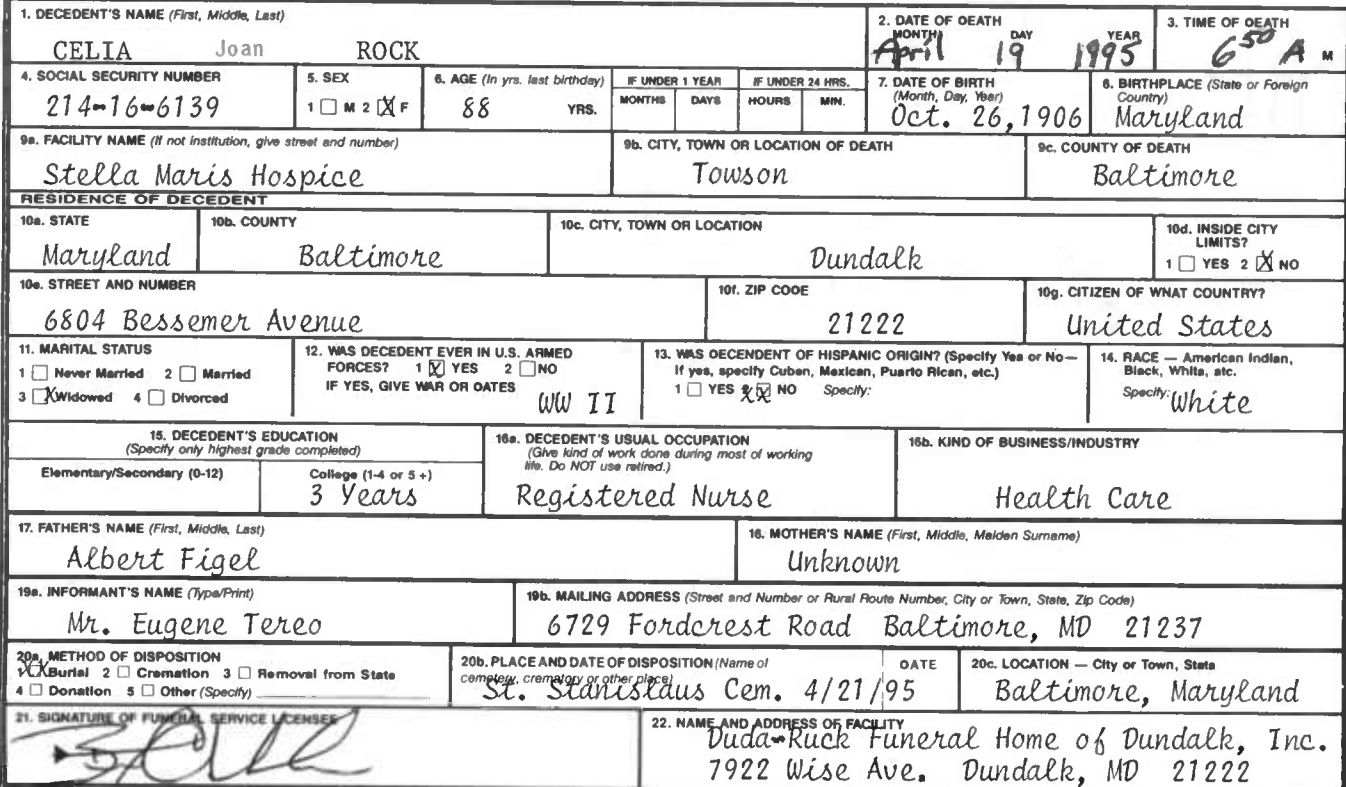 1. DECEDENT'S NAME (First, Middle, Last)
CELIA Joan ROCK
2. DATE OF DEATH
MONTH DAY YEAR
April 19 1995
3. TIME OF DEATH
6 50 A M
4. SOCIAL SECURITY NUMBER
214-16-6139
5. SEX
1 ☐ M 2 ☒ F
6. AGE (In yrs. last birthday)
88 YRS.
IF UNDER 1 YEAR
MONTHS DAYS
IF UNDER 24 HRS.
HOURS MIN.
7. DATE OF BIRTH
(Month, Day, Year)
Oct. 26, 1906
8. BIRTHPLACE (State or Foreign
Country)
Maryland
9a. FACILITY NAME (If not institution, give street and number)
Stella Maris Hospice
9b. CITY, TOWN OR LOCATION OF DEATH
Towson
9c. COUNTY OF DEATH
Baltimore
RESIDENCE OF DECEDENT
10a. STATE
Maryland
10b. COUNTY
Baltimore
10c. CITY, TOWN OR LOCATION
Dundalk
10d. INSIDE CITY
LIMITS?
1 ☐ YES 2 ☒ NO
10e. STREET AND NUMBER
6804 Bessemer Avenue
10f. ZIP CODE
21222
10g. CITIZEN OF WHAT COUNTRY?
United States
11. MARITAL STATUS
1 ☐ Never Married 2 ☐ Married
3 ☒ Widowed 4 ☐ Divorced
12. WAS DECEDENT EVER IN U.S. ARMED
FORCES? 1 ☒ YES 2 ☐ NO
IF YES, GIVE WAR OR DATES
WW II
13. WAS DECENDENT OF HISPANIC ORIGIN? (Specify Yes or No—
If yes, specify Cuban, Mexican, Puerto Rican, etc.)
1 ☐ YES 2 ☒ NO Specify:
14. RACE — American Indian,
Black, White, etc.
Specify: White
15. DECEDENT'S EDUCATION
(Specify only highest grade completed)
Elementary/Secondary (0-12)
College (1-4 or 5+)
3 Years
16a. DECEDENT'S USUAL OCCUPATION
(Give kind of work done during most of working
life. Do NOT use retired.)
Registered Nurse
16b. KIND OF BUSINESS/INDUSTRY
Health Care
17. FATHER'S NAME (First, Middle, Last)
Albert Figel
18. MOTHER'S NAME (First, Middle, Maiden Surname)
Unknown
19a. INFORMANT'S NAME (Type/Print)
Mr. Eugene Tereo
19b. MAILING ADDRESS (Street and Number or Rural Route Number, City or Town, State, Zip Code)
6729 Fordcrest Road Baltimore, MD 21237
20a. METHOD OF DISPOSITION
1 ☒ Burial 2 ☐ Cremation 3 ☐ Removal from State
4 ☐ Donation 5 ☐ Other (Specify)
20b. PLACE AND DATE OF DISPOSITION (Name of
cemetery, crematory or other place) DATE
St. Stanislaus Cem. 4/21/95
20c. LOCATION — City or Town, State
Baltimore, Maryland
21. SIGNATURE OF FUNERAL SERVICE LICENSEE
22. NAME AND ADDRESS OF FACILITY
Duda-Ruck Funeral Home of Dundalk, Inc.
7922 Wise Ave. Dundalk, MD 21222